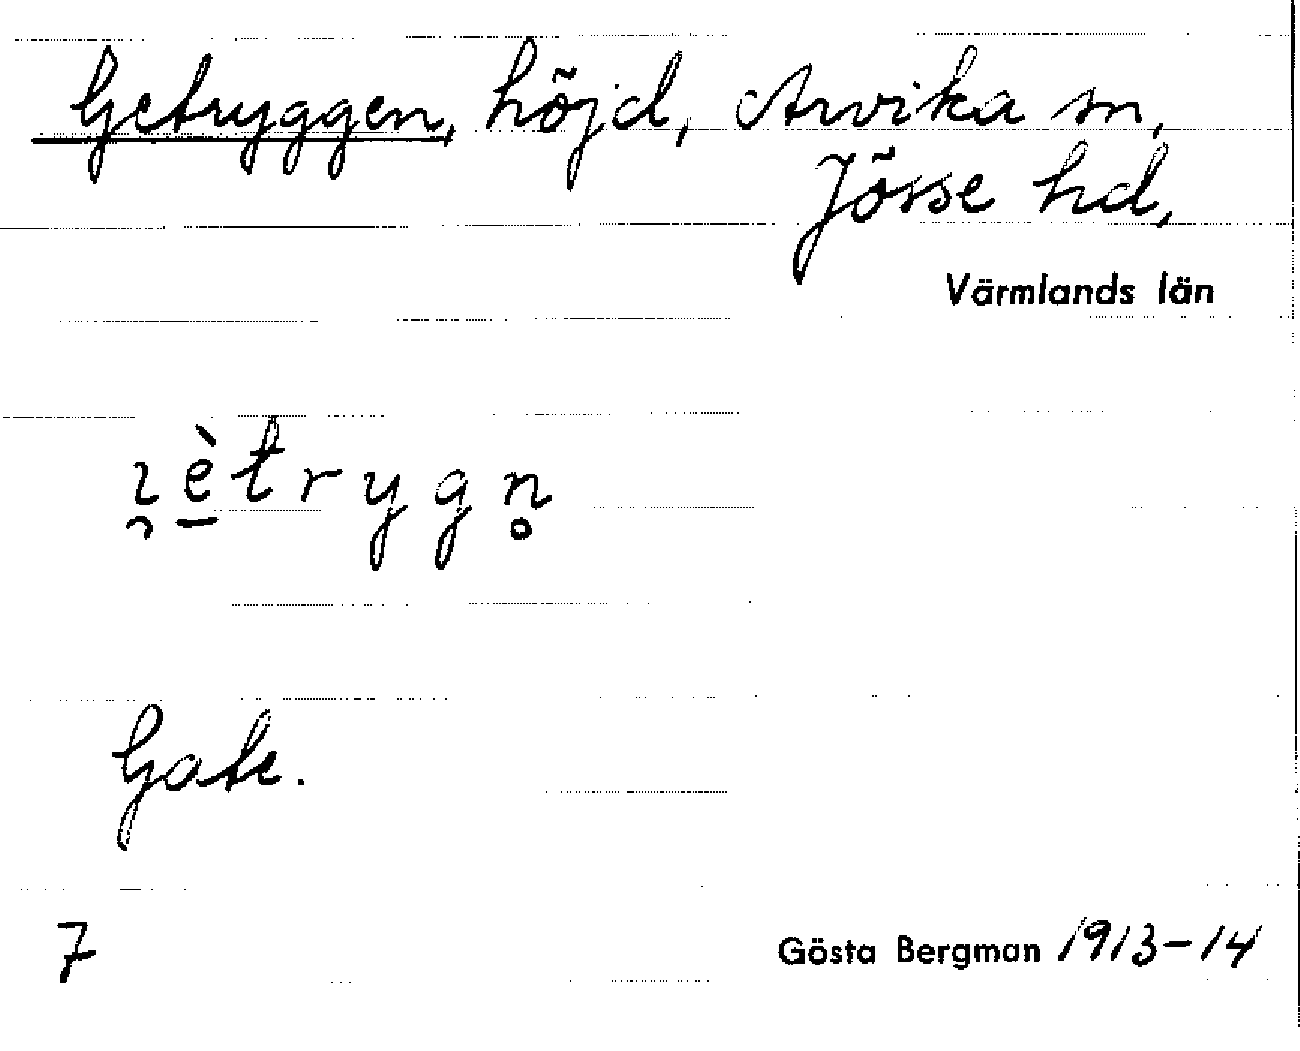 Getryggen, höjd, Arvika sn,
Jösse hd,
Värmlands län
ɿ̯è̱trygn̥
Gate.
7
Gösta Bergman 1913-14